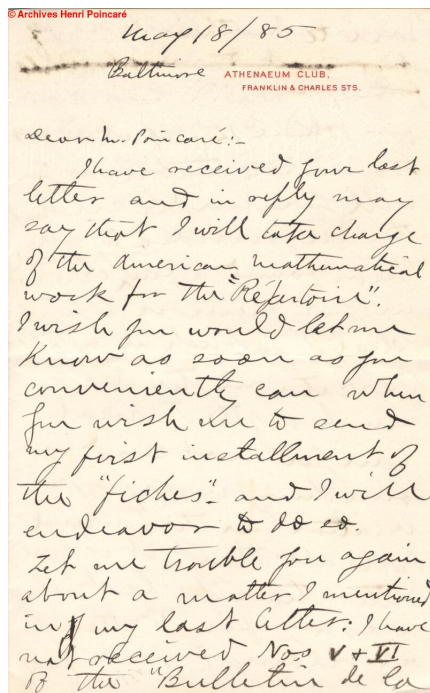 © Archives Henri Poincaré
May 18/85
Baltimore ATHENAEUM CLUB,
FRANKLIN & CHARLES STS.
Dear Mr. Poincaré:-
I have received your last
letter and in reply may
say that I will take charge
of the American mathematical
work for the "Répertoire".
I wish you would let me
know as soon as you
conveniently can when
you wish me to send
my first installment of
the "fiches"- and I will
endeavor to do so.
Let me trouble you again
about a matter I mentioned
in my last letter: I have
not received Nos V + VI
of the "Bulletin de la